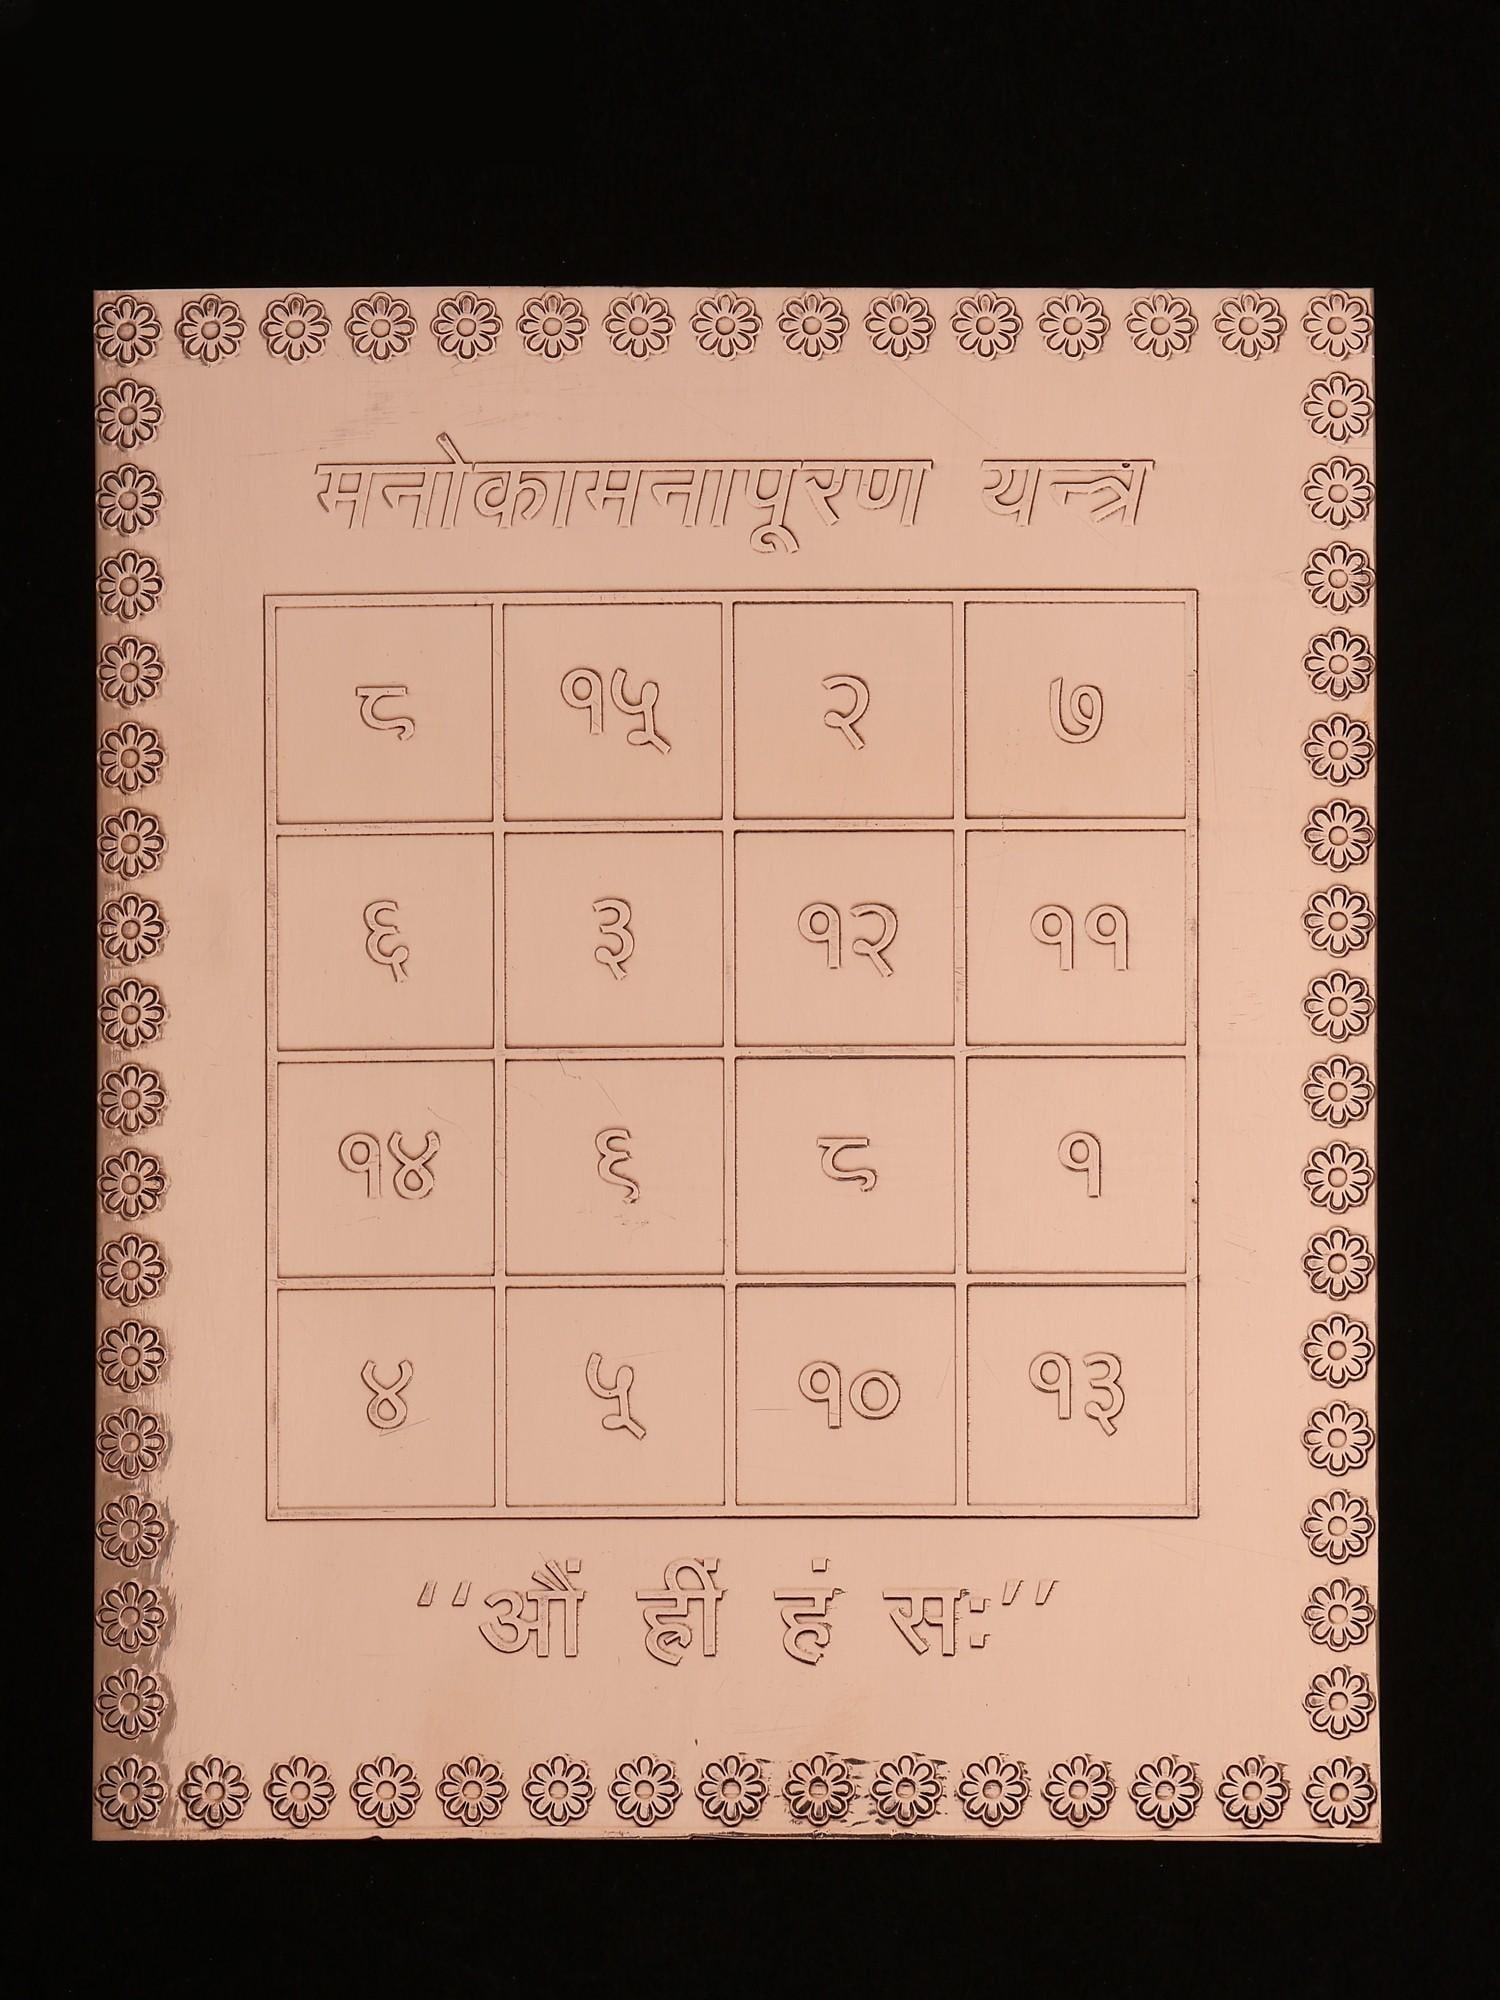 मनोकामनापूरण यन्त्रं
८ १५ २ ७
६ ३ १२ ११
१४ ९ ८ १
४ ५ १० १३
‘‘औं ह्रीं हं सः’’